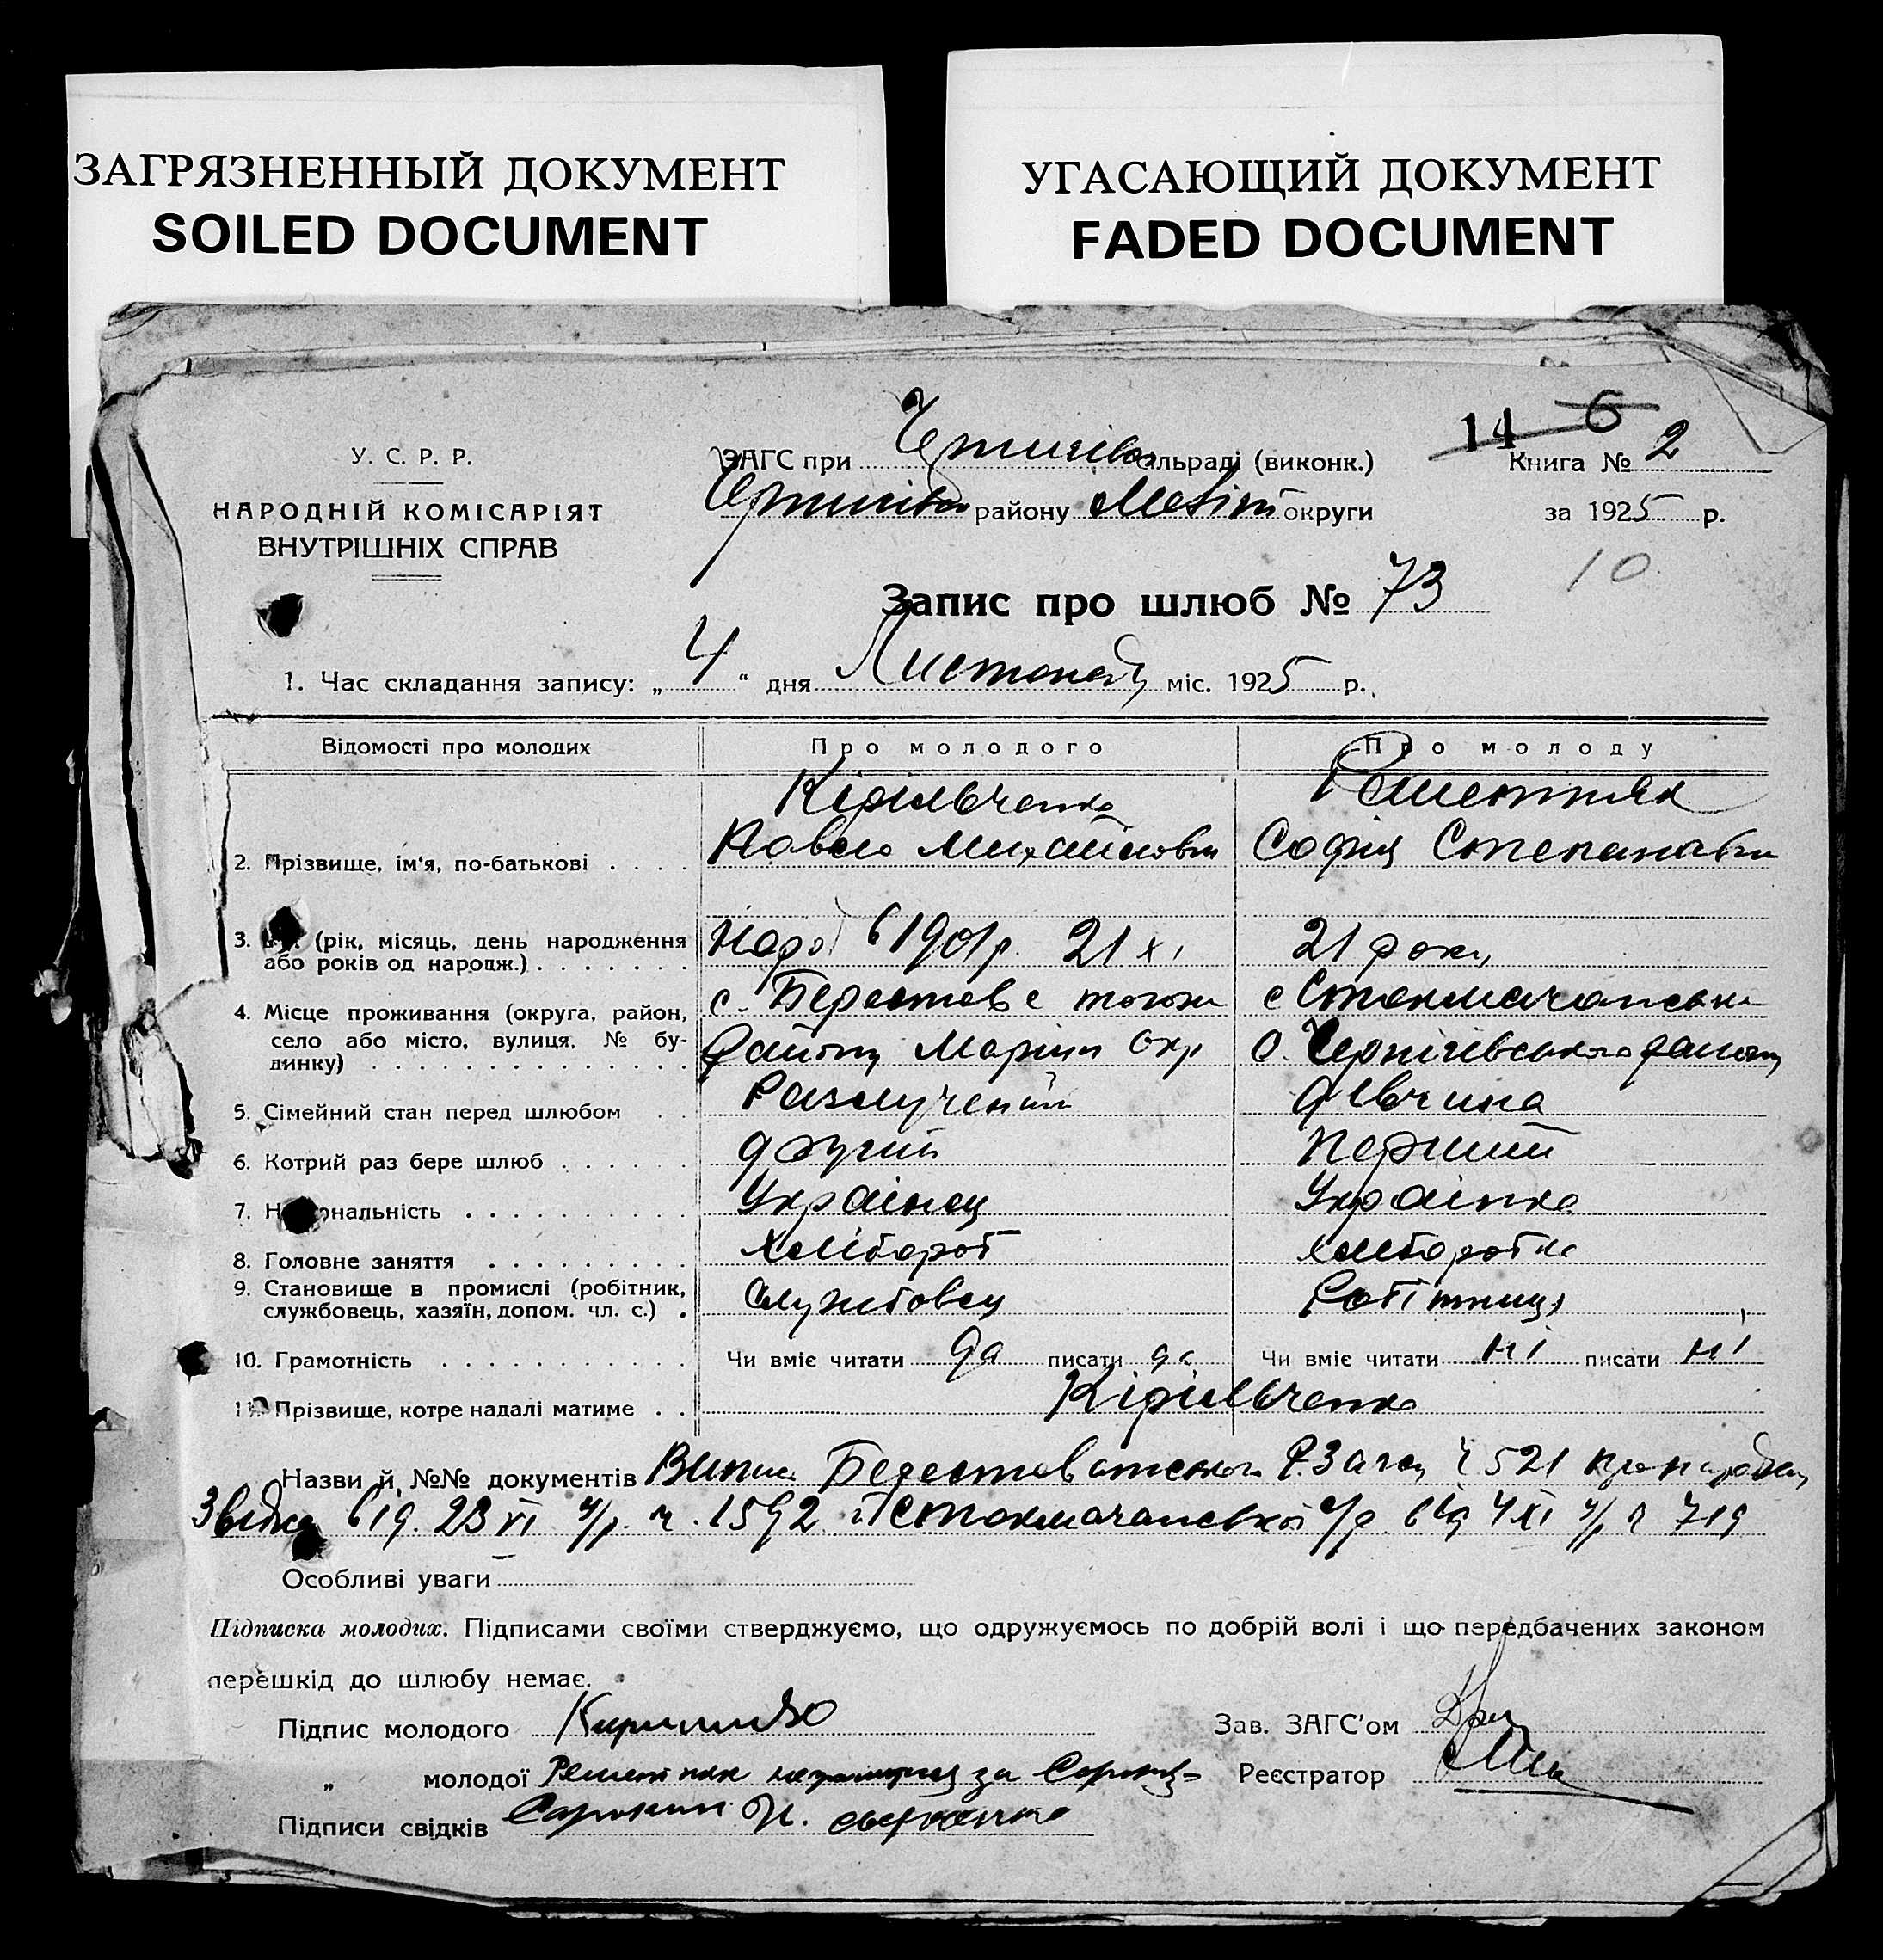 ЗАГРЯЗНЕННЫЙ ДОКУМЕНТ
SOILED DOCUMENT
УГАСАЮЩИЙ ДОКУМЕНТ
FADED DOCUMENT
14 6
У. С. Р. Р.
НАРОДНІЙ КОМІСАРІЯТ
ВНУТРІШНІХ СПРАВ
ЗАГС при сільраді (виконк.)
району Меліт округи
Книга № 2
за 1925 р.
10
Запис про шлюб № 73
1. Час складання запису: „ 4 “ дня Листопаду міс. 1925 р.
Відомості про молодих Про молодого Про молоду
Кірільченко Решетняк
2. Прізвище, ім'я, по-батькові . . . . Павло Михайлович Софія Степанавна
3. (рік, місяць, день народження Народ 1901 р. 21 XI 21 роки
або років од народж.) . . . . . . .
4. Місце проживання (округа, район, с. Берестове того ж с Стокмачанськи
село або місто, вулиця, № бу- району Маріуп Окр Чернігівського району
динку) . . . . . . . . . . . . . .
5. Сімейний стан перед шлюбом . . Разлучений дівчина
6. Котрий раз бере шлюб . . . . . . другий перший
7. Національність . . . . . . . . . . Українец Українка
8. Головне заняття . . . . . . . . . хлібороб хлiборобка
9. Становище в промислі (робітник, Службовец Робітниця
службовець, хазяїн, допом. чл. с.) .
10. Грамотність . . . . . . . . . . . Чи вміє читати да писати да Чи вміє читати ні писати ні
11. Прізвище, котре надалі матиме . . Кірільченко
Назви й №№ документів Випис Берестоватского Р. Загсу ч 521
від 23 XI ч. 1592 Стокмачанської с/р від 4 XI ч 719
Особливі уваги
Підписка молодих. Підписами своїми стверджуємо, що одружуємось по добрій волі і що передбачених законом
перешкід до шлюбу немає.
Підпис молодого
Зав. ЗАГС'ом
„ молодої Решетняк неграмотна за
Реєстратор
Підписи свідків